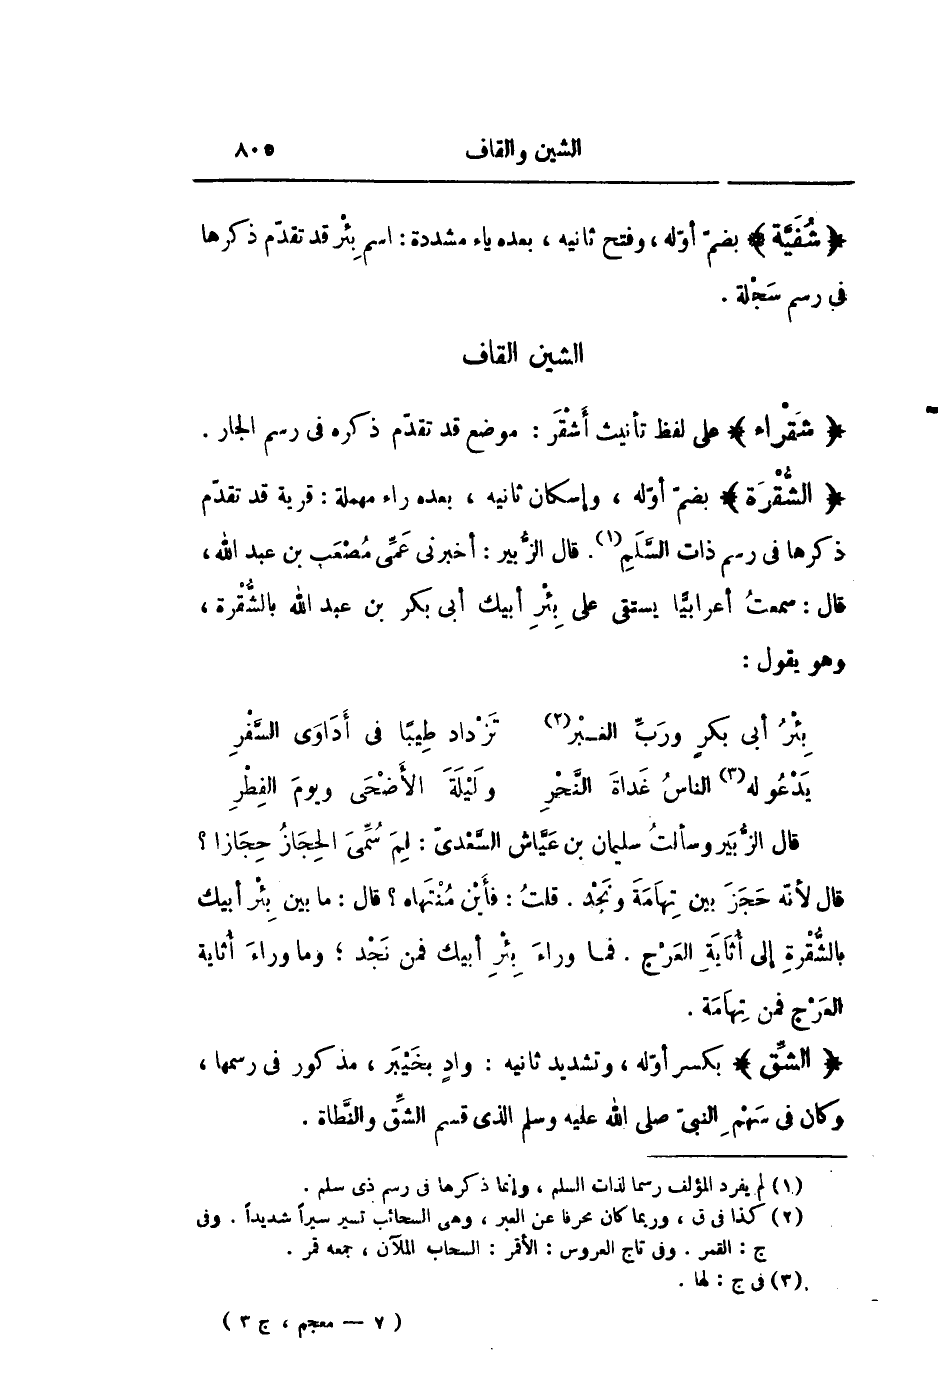 الشين والقاف ٨٠٥
﴿ شُفَيَّة ﴾ بضمّ أوّله ، وفتح ثانيه ، بعده ياء مشددة : اسم بِئْر قد تقدّم ذكرها
فى رسم سَجْلة .
الشين القاف
﴿ شَقْراء ﴾ على لفظ تأنيث أَشْقَر : موضع قد تقدّم ذكره فى رسم الجار .
﴿ الشُّقْرَة ﴾ بضمّ أوّله ، وإسكان ثانيه ، بعده راء مهملة : قرية قد تقدّم
ذكرها فى رسم ذات السَّلَمِ (١) . قال الزُّبير : أخبرنى عَمِّى مُصْعَب بن عبد الله ،
قال : سمعتُ أعرابيًّا يستقى على بِئْرِ أبيك أبى بكر بن عبد الله بالشُّقْرة ،
وهو يقول :
بِئْرُ أبى بكرٍ ورَبِّ الغــبْرِ (٢) تَزْداد طِيبًا فى أَدَاوَى السَّفْرِ
يَدْعُو له (٣) الناسُ غَداةَ النَّحْرِ ولَيْلَةَ الأَضْحَى ويومَ الفِطْرِ
قال الزُّبَير وسألتُ سليمان بن عَيَّاش السَّعْدىّ : لِمَ سُمِّىَ الحِجَازُ حِجَازا ؟
قال لأنّه حَجَزَ بين تِهاَمَةَ ونَجْد . قلتُ : فأَيْن مُنْتَهاه ؟ قال : ما بين بِئْر أبيك
بالشُّقْرةِ إلى أُثَايَةِ العَرْج . فمـا وراءَ بِئْرِ أبيك فمن نَجْد ؛ وما وراءَ أُثاية
العَرْج فمن تِهاَمَة .
﴿ الشِّق ﴾ بكسر أوّله ، وتشديد ثانيه : وادٍ بخَيْبَر ، مذكور فى رسمها ،
وكان فى سَهْمِ النبىّ صلى الله عليه وسلم الذى قسم الشِّق والنَّطاة .
(١) لم يفرد المؤلف رسما لذات السلم ، وإنما ذكرها فى رسم ذى سلم .
(٢) كذا فى ق ، وربما كان محرفا عن العبر ، وهى السحائب تسير سيراً شديداً . وفى
ج : القمر . وفى تاج العروس : الأقمر : السحاب الملآن ، جمعه قمر .
(٣) فى ج : لها .
( ٧ — معجم ، ج ٣ )